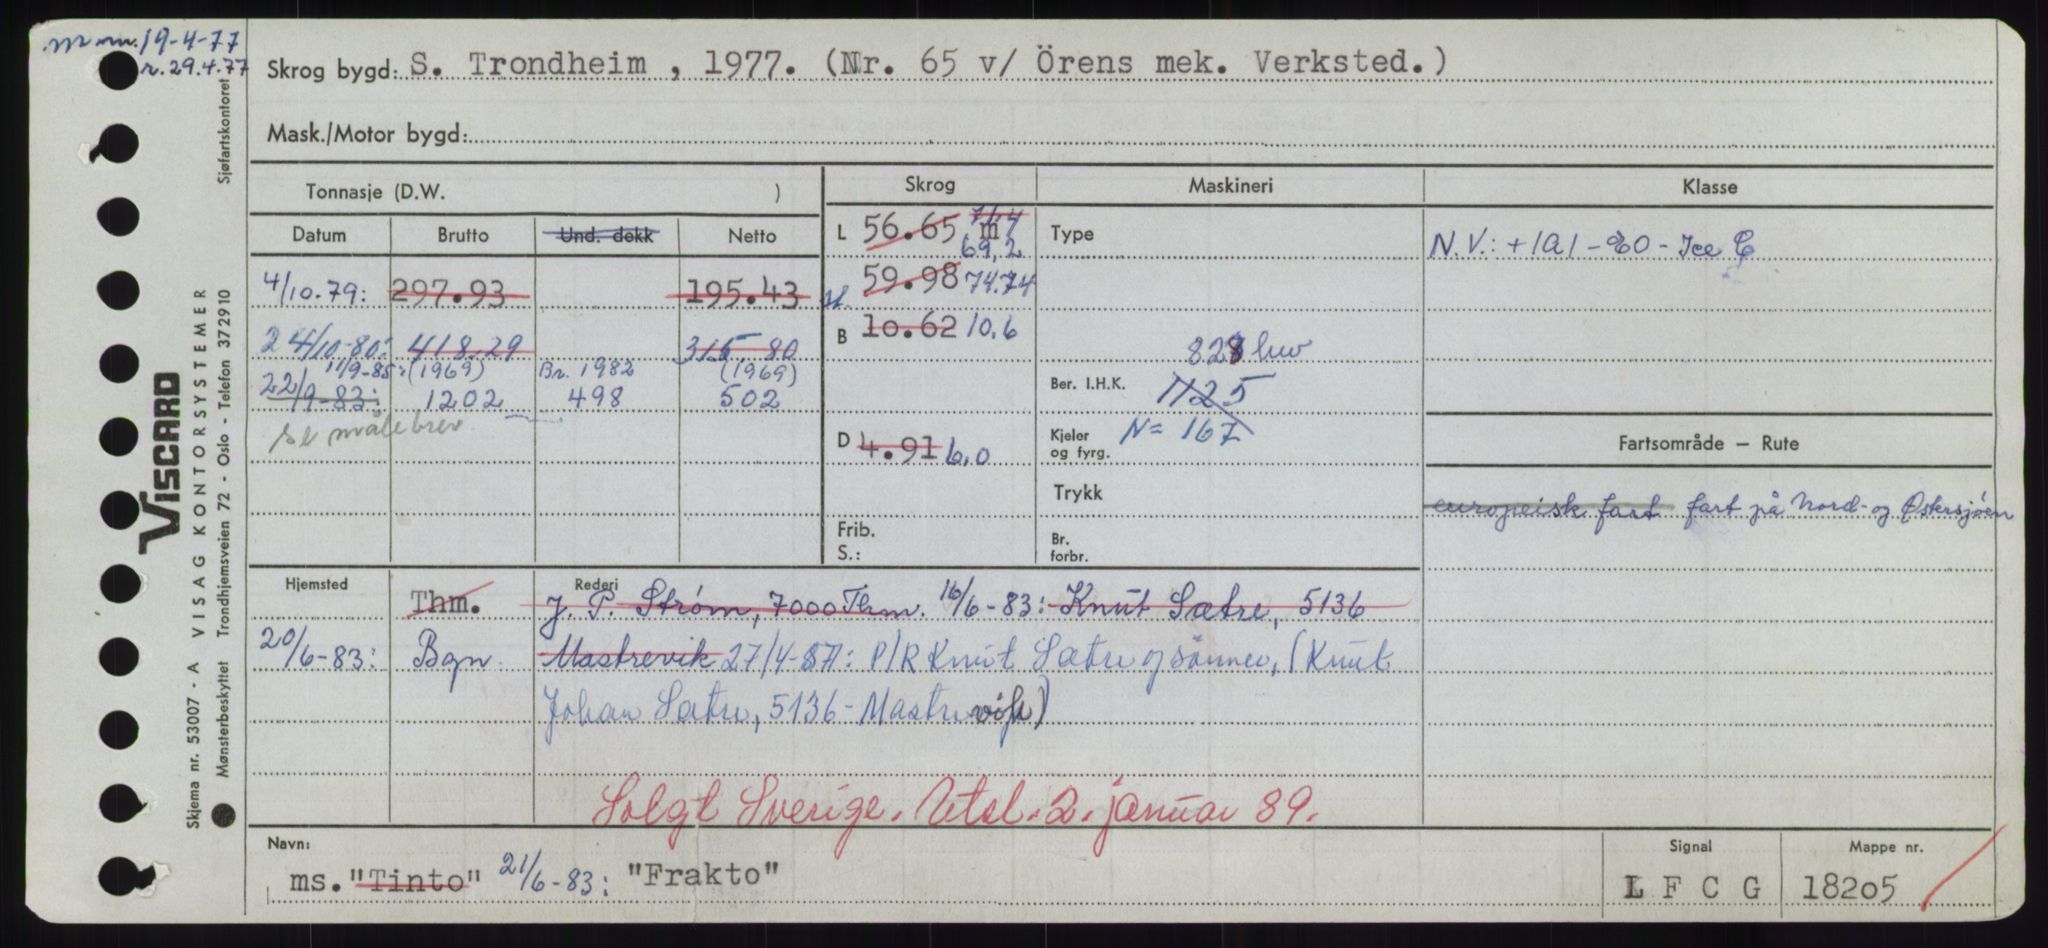 m. m. 19-4-77
r. 29.4.77
Skrog bygd: S. Trondheim , 1977. (Nr. 65 v/ Örens mek. Verksted.)
Mask./Motor bygd:
Tonnasje (D.W. )
Skrog
Maskineri
Klasse
Datum Brutto Und. dekk Netto
L 56.65 m 71,4 69,2
Type
N.V.: +1A1-E0-Ice C
4/10.79: 297.93 195.43
sl. 59.98 74.74
24/10-80: 418.29 315.80
B 10.62 10.6
11/9-85: (1969) Br. 1982 (1969)
828 kw
22/9-83: 1202 498 502
Ber. I.H.K. 1125
se målebrev
D 4.91 6,0
Kjeler og fyrg. N= 167
Fartsområde — Rute
Trykk
europeisk fart fart på Nord- og Østersjøen
Frib.
S.:
Br. forbr.
Hjemsted Thm.
Rederi J. P. Strøm, 7000 Thm. 16/6-83: Knut Sætre, 5136
20/6-83: Bgn Mastrevik 27/4-87: P/R Knut Sætre og sønner, (Knut
Johan Sætre, 5136-Mastrevik)
Solgt Sverige. Utsl. 2. januar 89.
Navn:
ms. "Tinto" 21/6-83: "Frakto"
Signal
L F C G
Mappe nr.
18205
Skjema nr. 53007 - A VISAG KONTORSYSTEMER
VISCARD
Mønsterbeskyttet Trondhjemsveien 72 - Oslo - Telefon 372910 Sjøfartskontoret